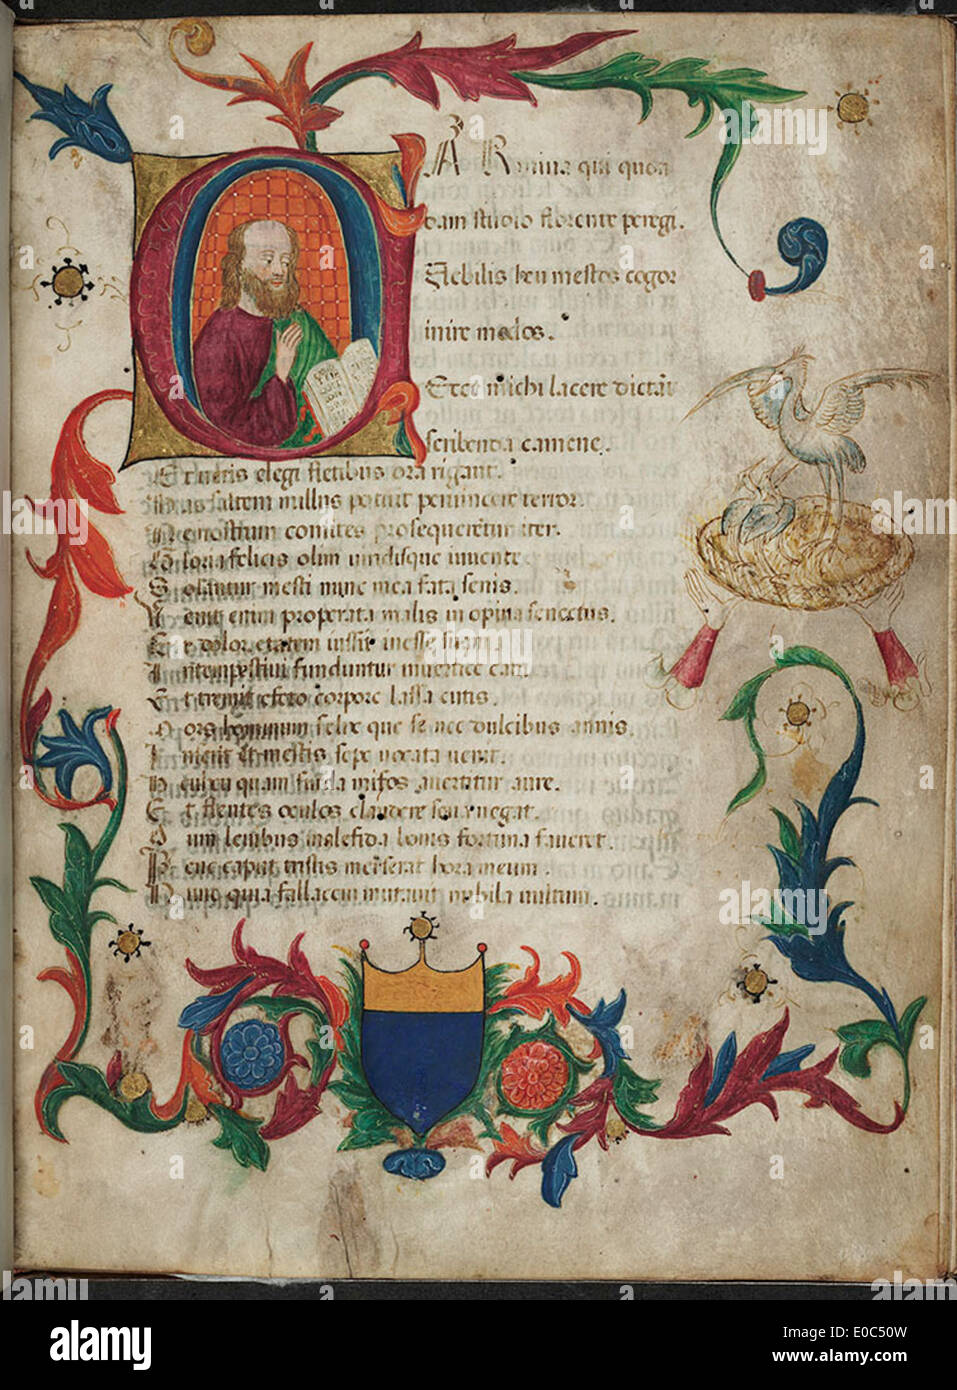 CARmina qui quon
dam studio florente peregi.
Flebilis heu mestos cogor
inire modos.
Ecce michi lacere dictant
scribenda camene.
Et veris elegi fletibus ora rigant.
Has saltem nullus potuit pervincere terror.
Ne nostrum comites prosequeretur iter.
Gloria felicis olim viridisque iuvente
Solantur mesti nunc mea fata senis.
Venit enim properata malis inopina senectus.
Et dolor etatem iussit inesse suam
Intempestivi funduntur vertice cani
Et tremit efeto corpore lassa cutis.
Mors hominum felix que se nec dulcibus annis
Inserit et mestis sepe vocata venit.
Heu heu quam surda miseros avertitur aure.
Et flentes oculos claudere seva negat.
Dum levibus malefida bonis fortuna faveret.
Pene caput tristis merserat hora meum.
Nunc quia fallacem mutavit nubila vultum.
alamy
E0C50W
www.alamy.com